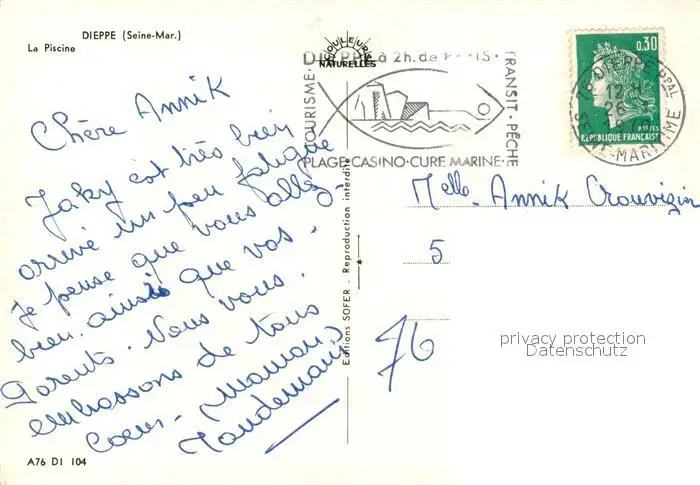 DIEPPE (Seine-Mar.)
La Piscine
COULEURS
NATURELLES
DIEPPE à 2h. de PARIS
TOURISME
TRANSIT · PÊCHE
PLAGE · CASINO · CURE MARINE
0,30
POSTES
REPUBLIQUE FRANÇAISE
DIEPPE PPAL
12H
26
SEINE-MARITIME
Chère Annik
Jaky est très bien
arrivé un peu fatigué
je pense que vous allez
bien ainsi que vos
Parents. Nous vous
embrassons de tous
Coeur. Maman
Editions SOFER - Reproduction interdite
Melle Annik
5
76
privacy protection
Datenschutz
A76 DI 104